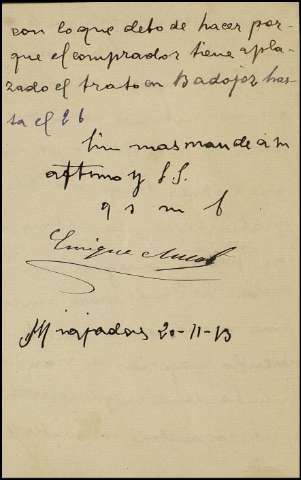 con lo que debo de hacer por-
que el comprador tiene apla-
zado el trato en Badajoz has-
ta el 26
Sin mas mande á su
afftmo y S. S.
q s m b
Enrique
Miajadas 20-11-13